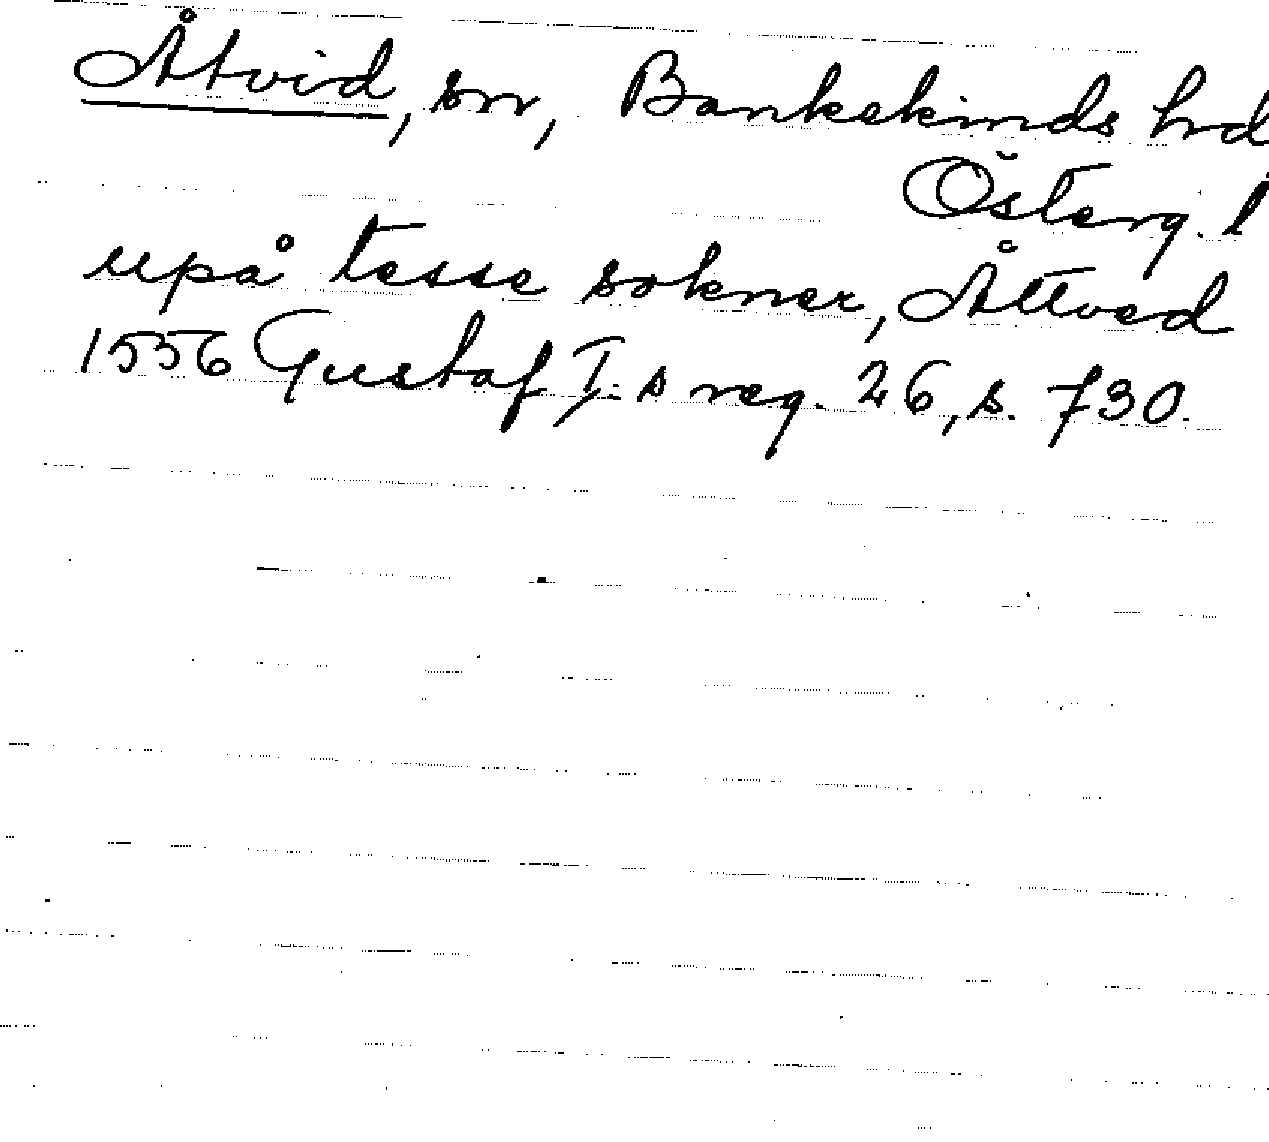 Åtvid, sn, Bankekinds hd
Österg. l
upå tesse sokner, Åttved
1556 Gustaf I.s reg. 26, s. 730.